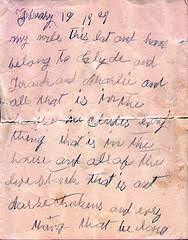 February 19 19
my wife this lot and home
belong to Clyde and
Frank and Charlie and
all that is in the
house every
thing that is in the
house and all of the
live stock that is out
chickens and every
thing that belong